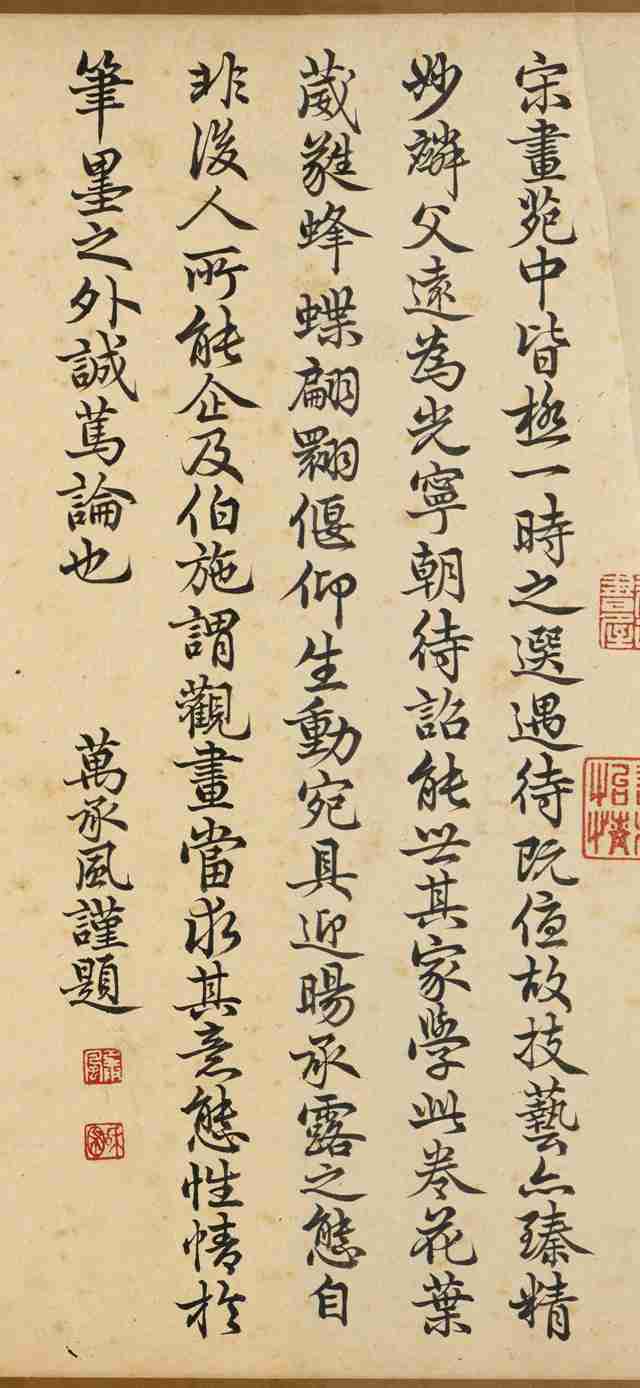 宋畫苑中皆極一時之選遇待既故技藝亦臻精
妙麟父遠為光寧朝待詔能世其家學此卷花葉
葳蕤蜂蝶翩翾偃仰生動宛具迎暘承露之態自
非後人所能企及伯施謂觀畫當求其意態性情於
筆墨之外誠篤論也
萬承風謹題
承風
怡情